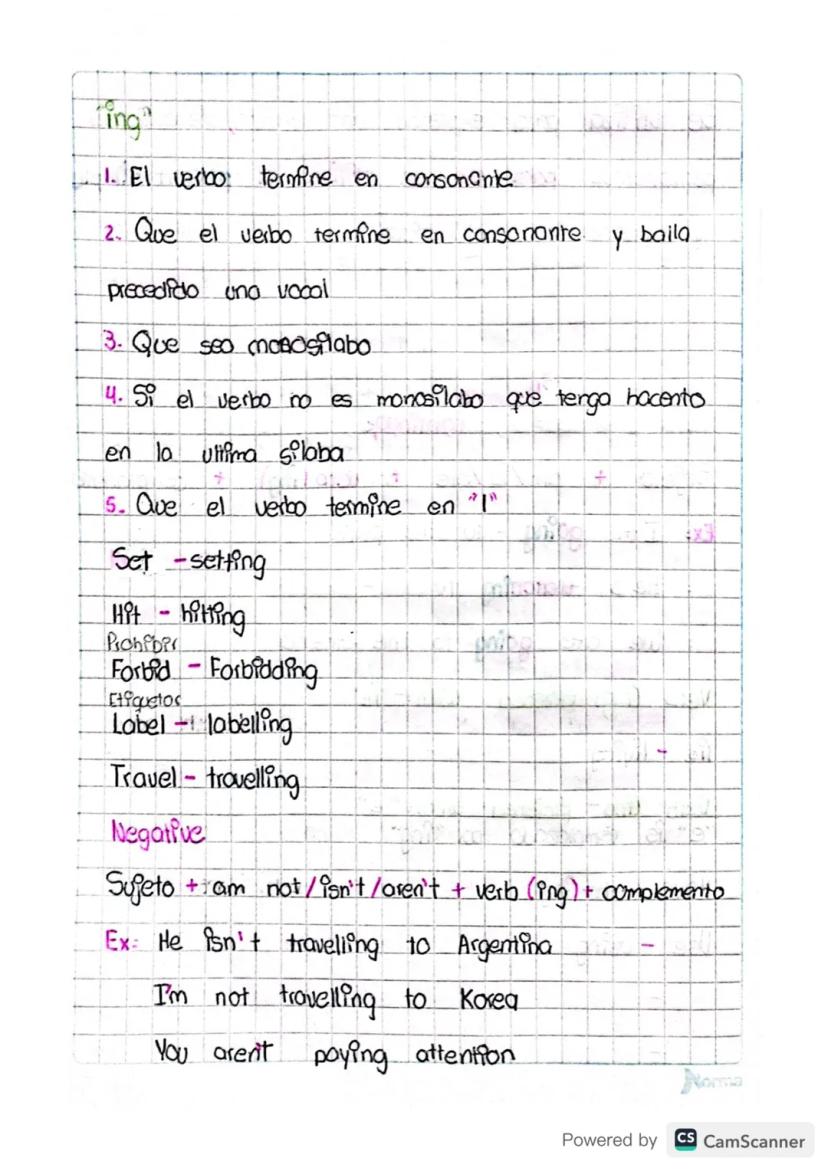 "ing"
1. El verbo termine en consonante
2. Que el verbo termine en consonante y baila
precedido una vocal
3. Que sea monosílabo
4. Si el verbo no es monosílabo que tenga hacento
en la ultima sílaba
5. Que el verbo termine en "l"
Set - setting
Hit - hitting
Prohibir
Forbid - Forbidding
Etiquetar
Label - labelling
Travel - travelling
Negative
Sujeto + am not / isn't / aren't + verb (ing) + complemento
Ex: He isn't travelling to Argentina
I'm not travelling to Korea
You aren't paying attention
Norma
Powered by CS CamScanner